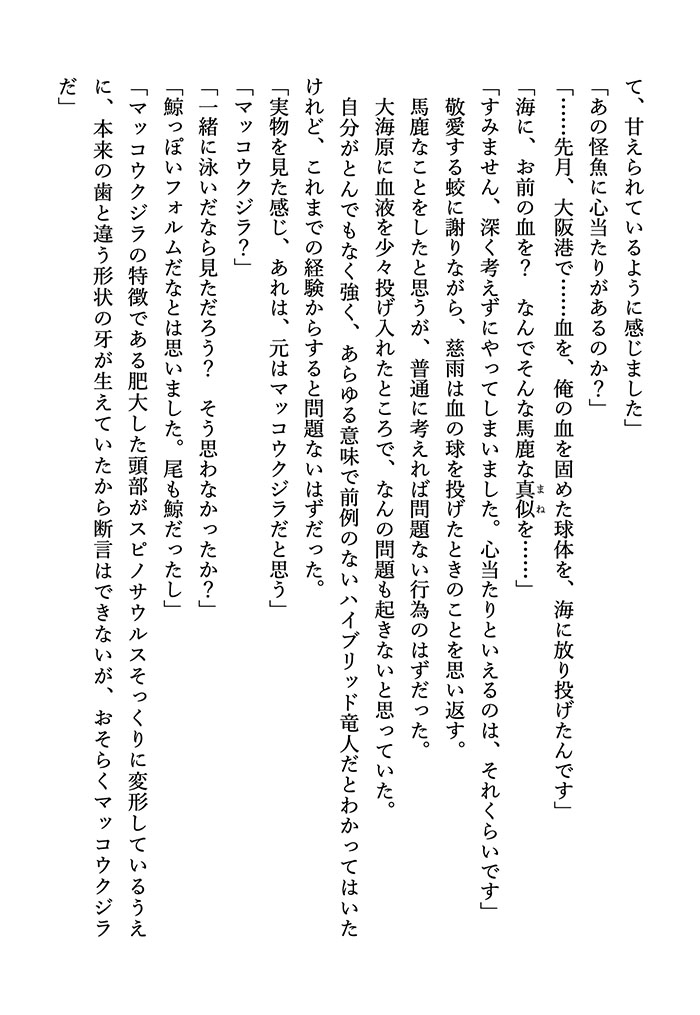 て、甘えられているように感じました」
「あの怪魚に心当たりがあるのか？」
「……先月、大阪港で……血を、俺の血を固めた球体を、海に放り投げたんです」
「海に、お前の血を？　なんでそんな馬鹿な真似を……」
「すみません、深く考えずにやってしまいました。心当たりといえるのは、それくらいです」
敬愛する蛟に謝りながら、慈雨は血の球を投げたときのことを思い返す。
馬鹿なことをしたと思うが、普通に考えれば問題ない行為のはずだった。
大海原に血液を少々投げ入れたところで、なんの問題も起きないと思っていた。
自分がとんでもなく強く、あらゆる意味で前例のないハイブリッド竜人だとわかってはいた
けれど、これまでの経験からすると問題ないはずだった。
「実物を見た感じ、あれは、元はマッコウクジラだと思う」
「マッコウクジラ？」
「一緒に泳いだなら見ただろう？　そう思わなかったか？」
「鯨っぽいフォルムだなとは思いました。尾も鯨だったし」
「マッコウクジラの特徴である肥大した頭部がスピノサウルスそっくりに変形しているうえ
に、本来の歯と違う形状の牙が生えていたから断言はできないが、おそらくマッコウクジラ
だ」
まね